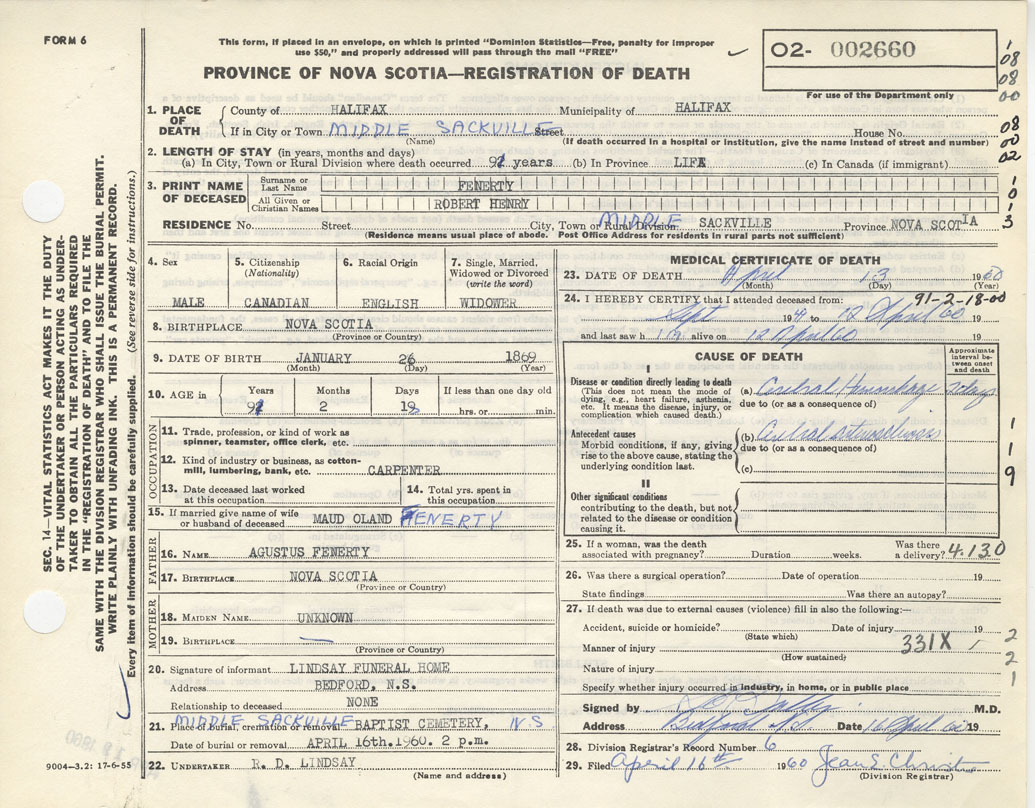 FORM 6
This form, if placed in an envelope, on which is printed "Dominion Statistics—Free, penalty for improper
use $50," and properly addressed will pass through the mail "FREE"
02- 002660
For use of the Department only
PROVINCE OF NOVA SCOTIA—REGISTRATION OF DEATH
1. PLACE OF DEATH
County of HALIFAX Municipality of HALIFAX
If in City or Town MIDDLE SACKVILLE Street House No.
(Name) (If death occurred in a hospital or institution, give the name instead of street and number)
2. LENGTH OF STAY (in years, months and days)
(a) In City, Town or Rural Division where death occurred 91 years (b) In Province LIFE (c) In Canada (if immigrant)
3. PRINT NAME OF DECEASED
Surname or Last Name FENERTY
All Given or Christian Names ROBERT HENRY
RESIDENCE No. Street City, Town or Rural Division MIDDLE SACKVILLE Province NOVA SCOTIA
(Residence means usual place of abode. Post Office Address for residents in rural parts not sufficient)
4. Sex MALE
5. Citizenship (Nationality) CANADIAN
6. Racial Origin ENGLISH
7. Single, Married, Widowed or Divorced (write the word) WIDOWER
8. BIRTHPLACE NOVA SCOTIA
(Province or Country)
9. DATE OF BIRTH JANUARY 26 1869
(Month) (Day) (Year)
10. AGE in Years Months Days If less than one day old
91 2 18 hrs. or min.
OCCUPATION
11. Trade, profession or kind of work as
spinner, teamster, office clerk, etc.
12. Kind of industry or business, as cotton-
mill, lumbering, bank, etc. CARPENTER
13. Date deceased last worked
at this occupation
14. Total yrs. spent in
this occupation
15. If married give name of wife
or husband of deceased MAUD OLAND FENERTY
FATHER
16. NAME AGUSTUS FENERTY
17. BIRTHPLACE NOVA SCOTIA
(Province or Country)
MOTHER
18. MAIDEN NAME UNKNOWN
19. BIRTHPLACE —
(Province or Country)
20. Signature of informant LINDSAY FUNERAL HOME
Address BEDFORD, N.S.
Relationship to deceased NONE
21. Place of burial, cremation or removal MIDDLE SACKVILLE BAPTIST CEMETERY, NS
Date of burial or removal APRIL 16th.1960. 2 p.m.
22. UNDERTAKER R. D. LINDSAY
(Name and address)
MEDICAL CERTIFICATE OF DEATH
23. DATE OF DEATH April 13 1960
(Month) (Day) (Year)
91-2-18-00
24. I HEREBY CERTIFY that I attended deceased from:
Sept 19 to 12 April 60 19
and last saw him alive on 12 April 60 19
CAUSE OF DEATH
Approximate interval between onset and death
I
Disease or condition directly leading to death
(This does not mean the mode of
dying, e.g., heart failure, asthenia,
etc. It means the disease, injury, or
complication which caused death.)
(a) Cerebral Hemorrhage days
due to (or as a consequence of)
Antecedent causes
Morbid conditions, if any, giving
rise to the above cause, stating the
underlying condition last.
(b) Cerebral
due to (or as a consequence of)
(c)
II
Other significant conditions
contributing to the death, but not
related to the disease or condition
causing it.
25. If a woman, was the death
associated with pregnancy? Duration weeks. Was there a delivery?
4.130
26. Was there a surgical operation? Date of operation 19
State findings Was there an autopsy?
27. If death was due to external causes (violence) fill in also the following:—
Accident, suicide or homicide? Date of injury 19
(State which)
Manner of injury 331X
(How sustained)
Nature of injury
Specify whether injury occurred in industry, in home, or in public place
Signed by M.D.
Address Bedford NS Date 16 April 60 19
28. Division Registrar's Record Number 6
29. Filed April 16th 1960 Jean E. Christie
(Division Registrar)
SEC. 14—VITAL STATISTICS ACT MAKES IT THE DUTY
OF THE UNDERTAKER OR PERSON ACTING AS UNDER-
TAKER TO OBTAIN ALL THE PARTICULARS REQUIRED
IN THE "REGISTRATION OF DEATH" AND TO FILE THE
SAME WITH THE DIVISION REGISTRAR WHO SHALL ISSUE THE BURIAL PERMIT.
WRITE PLAINLY WITH UNFADING INK. THIS IS A PERMANENT RECORD.
Every item of information should be carefully supplied. (See reverse side for instructions.)
9004—3.2: 17-6-55
1
08
08
00
08
00
02
1
0
3
1
1
9
2
2
1